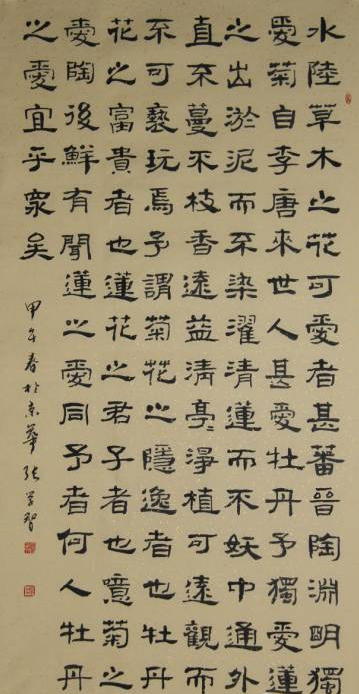 水陸草木之花可愛者甚蕃晉陶淵明獨
愛菊自李唐來世人甚愛牡丹予獨愛蓮
之出淤泥而不染濯清蓮而不妖中通外
直不蔓不枝香遠益清亭々淨植可遠觀而
不可褻玩焉予謂菊花之隱逸者也牡丹
花之富貴者也蓮花之君子者也噫菊之
愛陶後鮮有聞蓮之愛同予者何人牡丹
之愛宜乎衆矣
甲午春於京華張學智